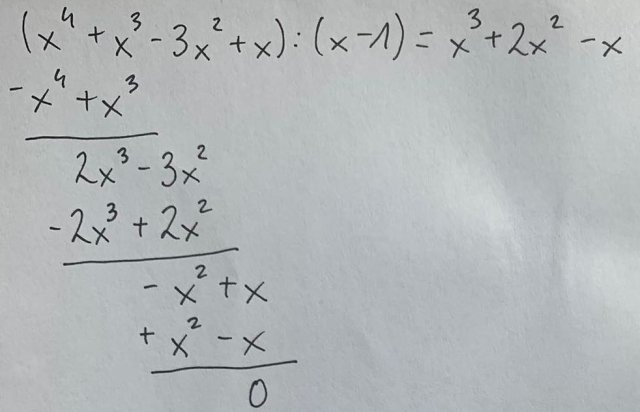 (x⁴ + x³ - 3x² + x) : (x - 1) = x³ + 2x² - x
- x⁴ + x³
2x³ - 3x²
- 2x³ + 2x²
- x² + x
+ x² - x
0